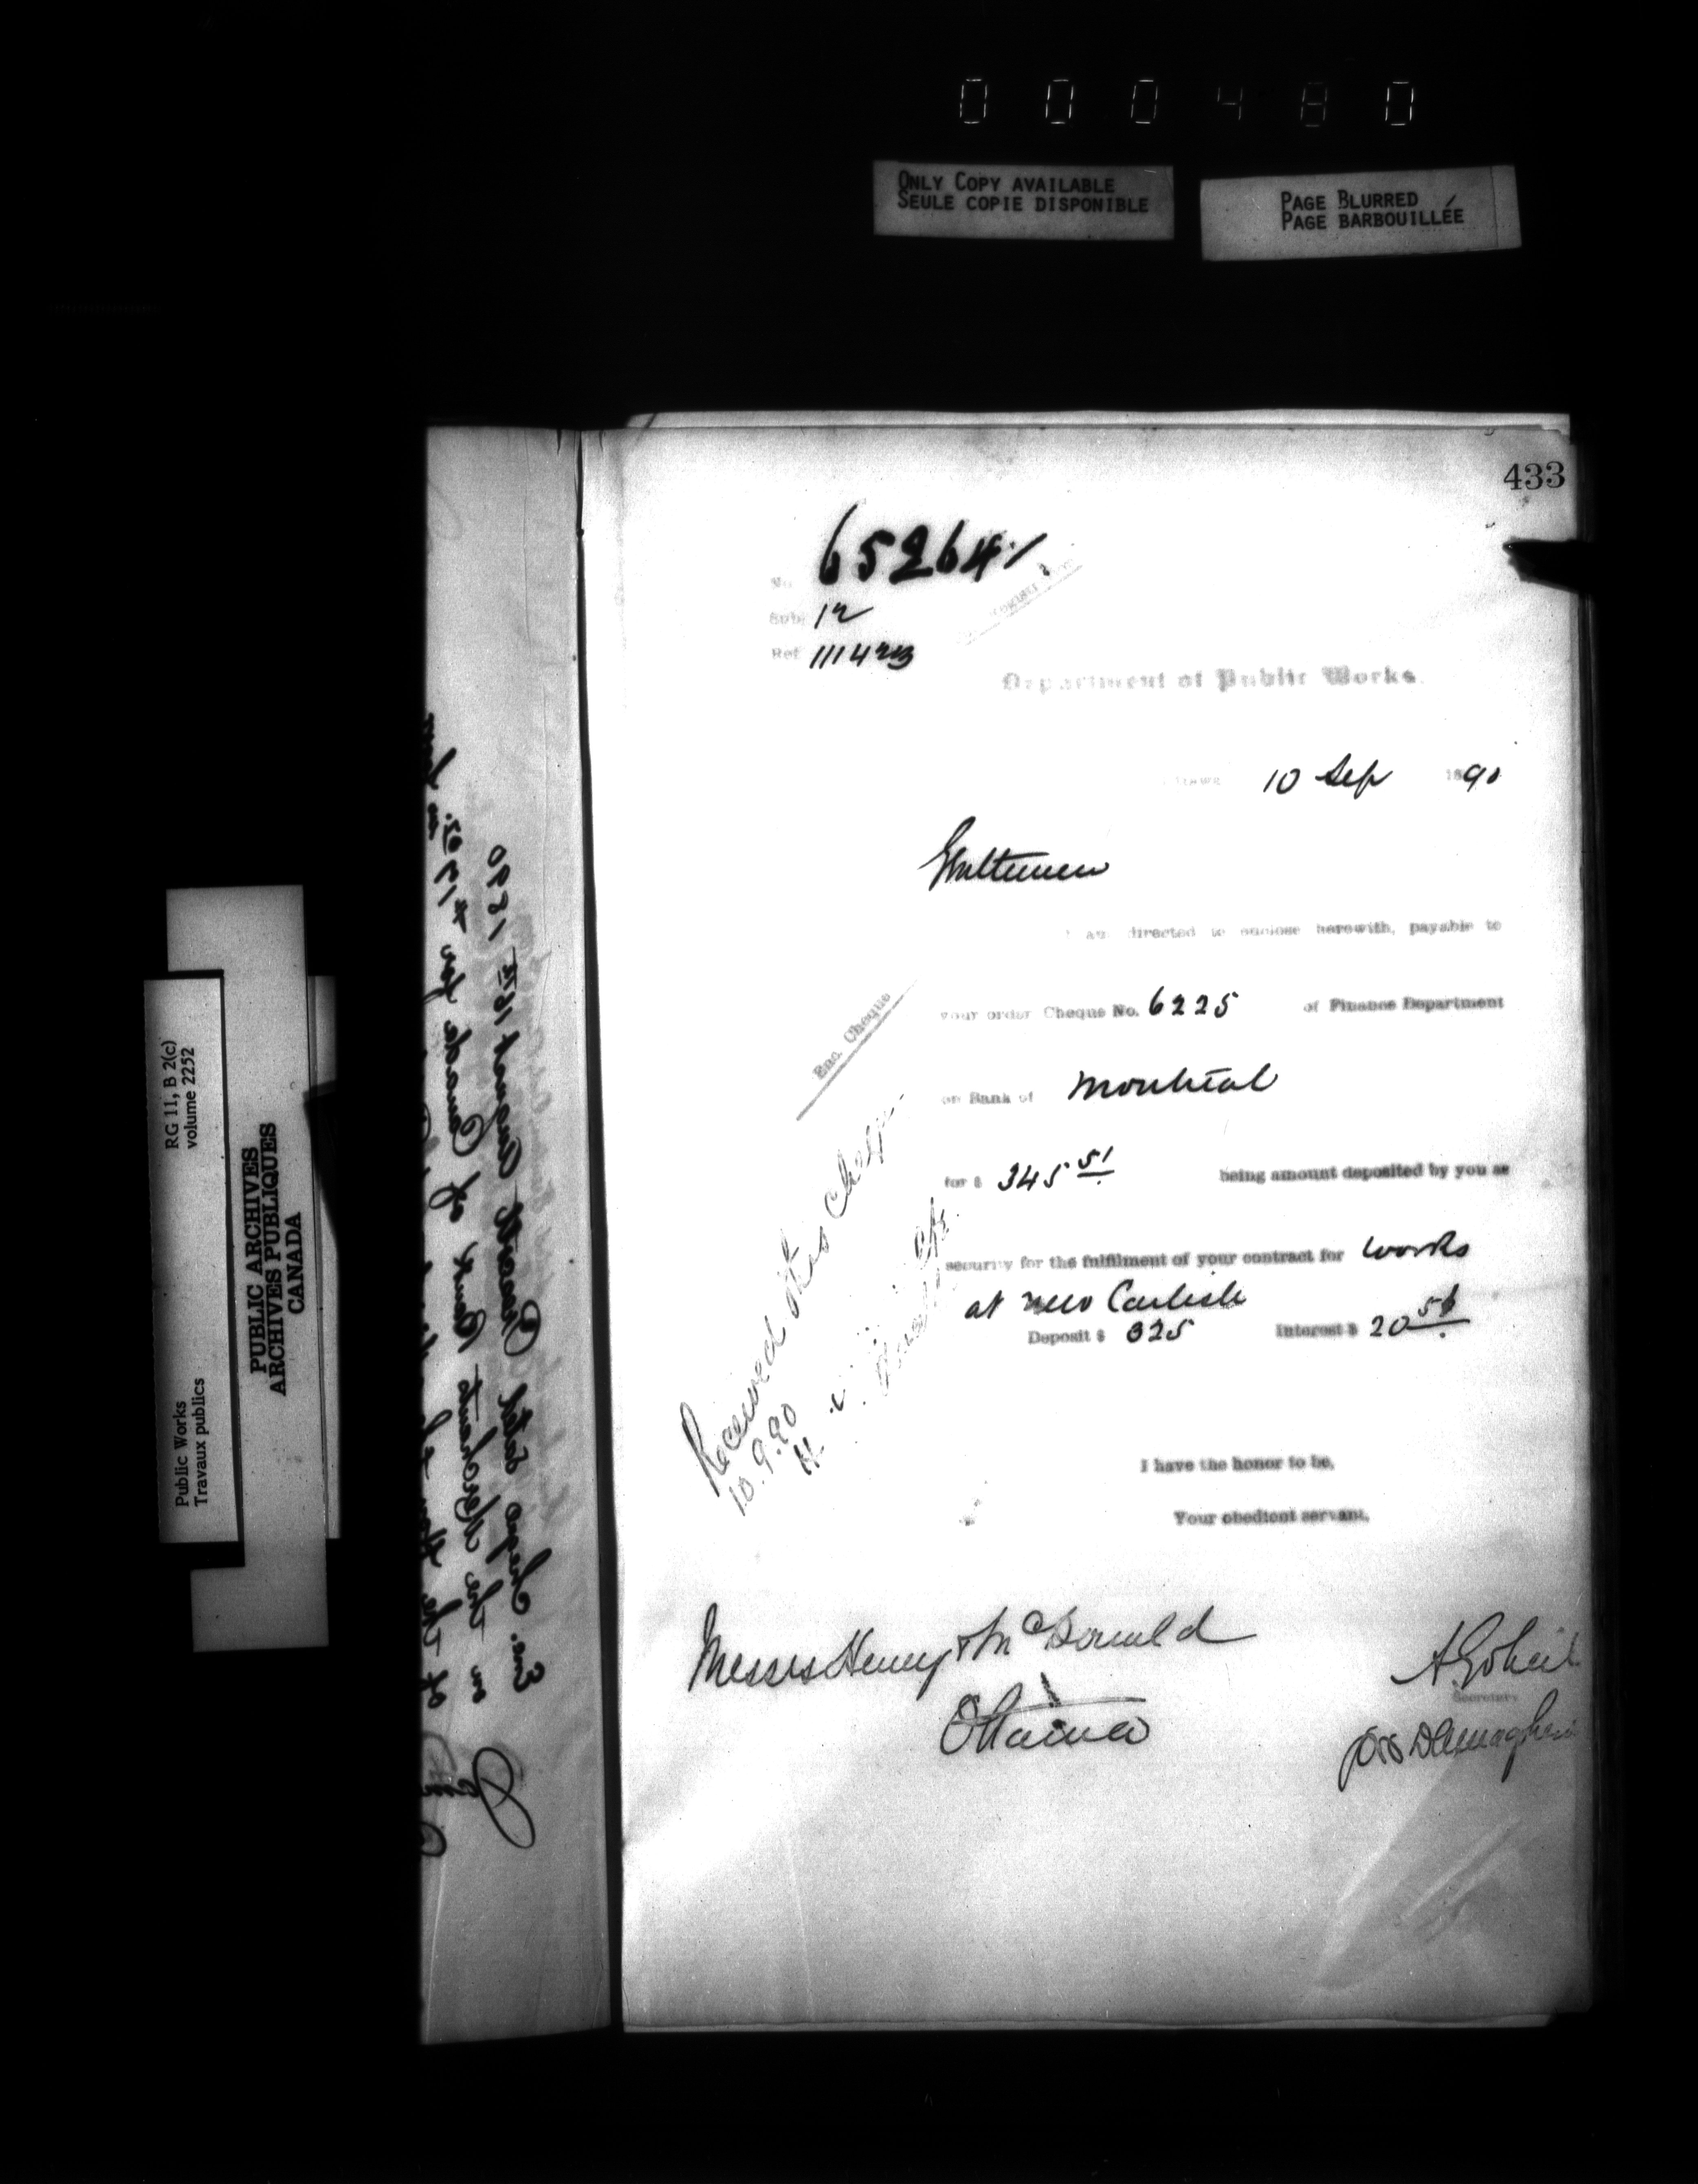 0 0 0 4 8 0
ONLY COPY AVAILABLE
SEULE COPIE DISPONIBLE
PAGE BLURRED
PAGE BARBOUILLÉE
433
No. 65264
Sub. 12
Ref. 111423
Department of Public Works.
10 Sep 1890
Gentlemen
I am directed to enclose herewith, payable to
your order Cheque No. 6225 of Finance Department
Enc. Cheque
on Bank of Montreal
for $ 345 51 being amount deposited by you as
security for the fulfilment of your contract for works
at New Carlisle
Deposit $ 325 Interest $ 20 51
Received this cheque
10.9.90
I have the honor to be,
Your obedient servant,
Messrs Henry & McDonald
Ottawa
A Gobeil
Secretary
RG 11, B 2(c)
volume 2252
Public Works
Travaux publics
PUBLIC ARCHIVES
ARCHIVES PUBLIQUES
CANADA
Enc. cheque dated August 18th 1890
on the Merchants Bank of Canada for